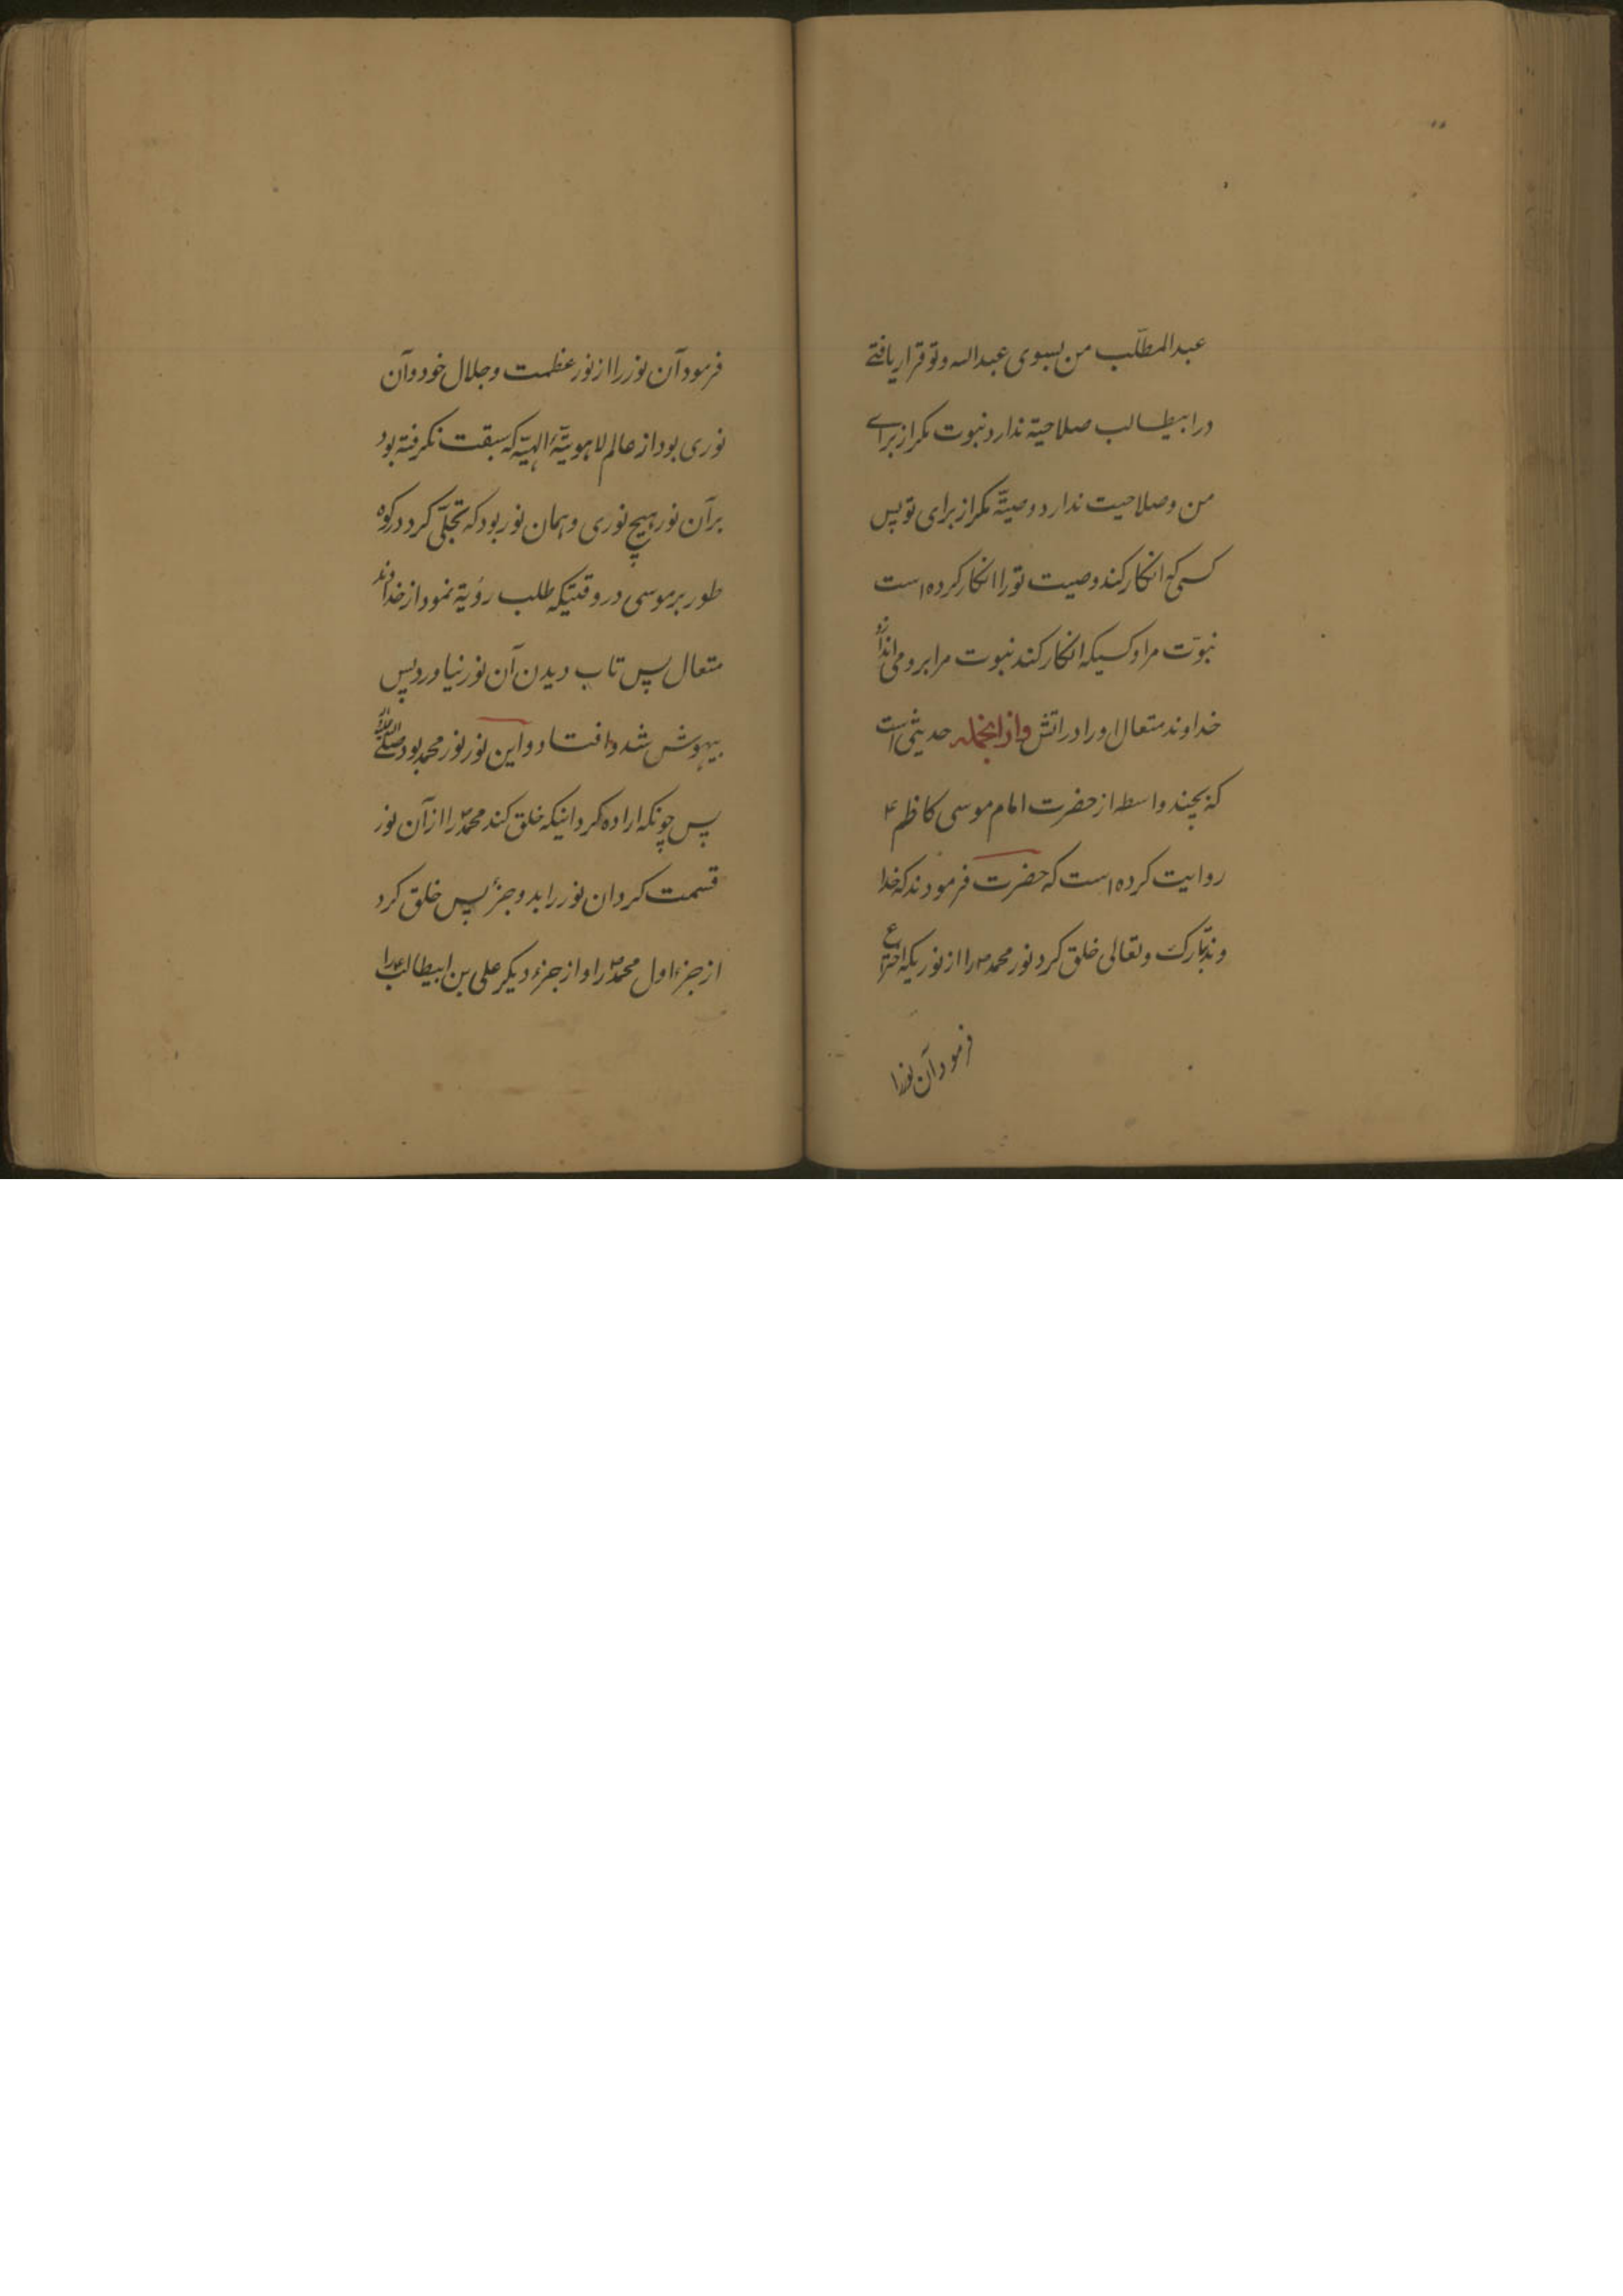 عبدالمطلّب من بسوی عبدالله و تو قرار یافتے
در ابیطالب صلاحیة ندارد نبوت مکر از براے
من و صلاحیت ندارد وصیّة مکر از برای تو پس
کسی که انکار کند وصیت تو را انکار کرده است
نبوّت مرا و کسیکه انکار کند نبوت مرا برو می اندازد
خداوند متعال او را در اتش واز انجمله حدیثی است
که بچند واسطه از حضرت امام موسی کاظم ع
روایت کرده است که حضرت فرمودند که خدا
وند تبارک و تعالی خلق کرد نور محمد ص را از نوریکه اختراع
فرمود آن نور را
فرمود آن نور را از نور عظمت و جلال خود و آن
نوری بود از عالم لاهوتیّهٔ الهیّه که سبقت نکرفته بود
بر آن نور هیچ نوری و همان نور بود که تجلّی کرد در کوه
طور بر موسی در وقتیکه طلب رؤیة نمود از خداوند
متعال پس تاب دیدن آن نور نیاورد پس
بیهوش شد و افتاد و این نور نور محمد بود صلی الله علیه و آله
پس چونکه اراده کرد اینکه خلق کند محمد ص را از آن نور
قسمت کرد ان نور را بدو جزء پس خلق کرد
از جزء اول محمد ص را و از جزء دیکر علی بن ابیطالب ع را